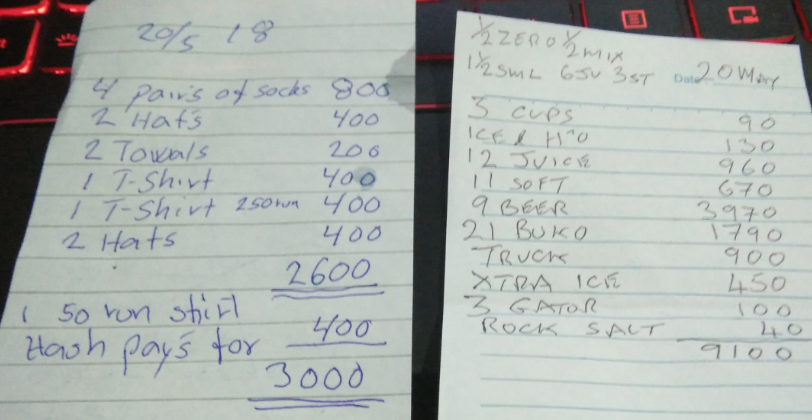 20/5 18
4 pairs of socks 800
2 Hats 400
2 Towals 200
1 T-Shirt 400
1 T-Shirt 250run 400
2 Hats 400
2600
1 50 run shirt
Hash pays for 400
3000
1/2 ZERO 1/2 MIX
1 1/2 SML 6JU 3ST Date 20 MAY
3 CUPS 90
ICE & H2O 130
12 JUICE 960
11 SOFT 670
9 BEER 3970
21 BUKO 1790
TRUCK 900
XTRA ICE 450
3 GATOR 100
ROCK SALT 40
9100